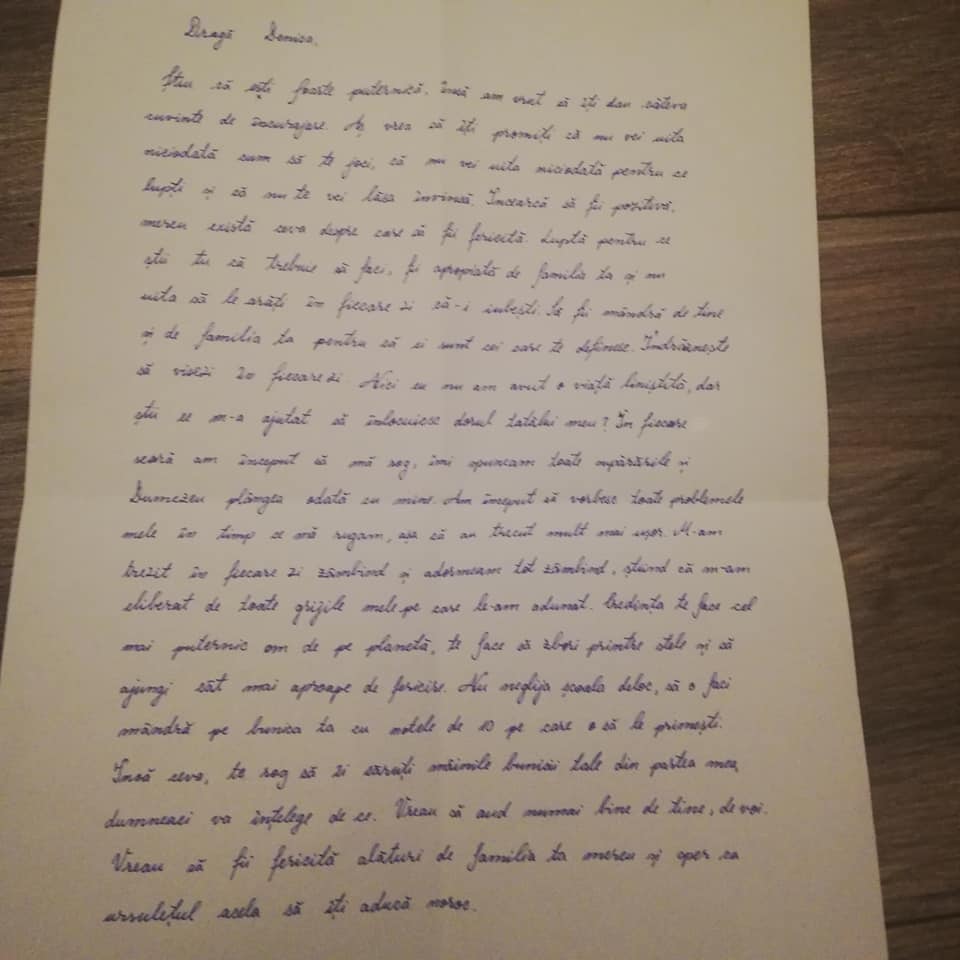 Dragă Denisa,
Știu că ești foarte puternică, însă am vrut să îți dau câteva
cuvinte de încurajare. Aș vrea să îți promiți că nu vei uita
niciodată cum să te joci, că nu vei uita niciodată pentru ce
lupți și că nu te vei lăsa învinsă. Încearcă să fii pozitivă,
mereu există ceva despre care să fii fericită. Luptă pentru ce
știi tu că trebuie să faci, fii apropiată de familia ta și nu
uita să le arăți în fiecare zi că-i iubești. Să fii mândră de tine
și de familia ta pentru că ei sunt cei care te definesc. Îndrăznește
să visezi în fiecare zi. Nici eu nu am avut o viață liniștită, dar
știi ce m-a ajutat să înlocuiesc dorul tatălui meu? În fiecare
seară am început să mă rog, îmi spuneam toate supărările și
Dumnezeu plângea odată cu mine. Am început să vorbesc toate problemele
mele în timp ce mă rugam, așa că au trecut mult mai ușor. M-am
trezit în fiecare zi zâmbind și adormeam tot zâmbind, știind că m-am
eliberat de toate grijile mele pe care le-am adunat. Credința te face cel
mai puternic om de pe planetă, te face să zbori printre stele și să
ajungi cât mai aproape de fericire. Nu neglija școala deloc, să o faci
mândră pe bunica ta cu notele de 10 pe care o să le primești.
Încă ceva, te rog să zi săruți mâinile bunicii tale din partea mea,
dumneaei va înțelege de ce. Vreau să aud numai bine de tine, de voi.
Vreau să fii fericită alături de familia ta mereu și sper ca
ursulețul acela să îți aducă noroc.